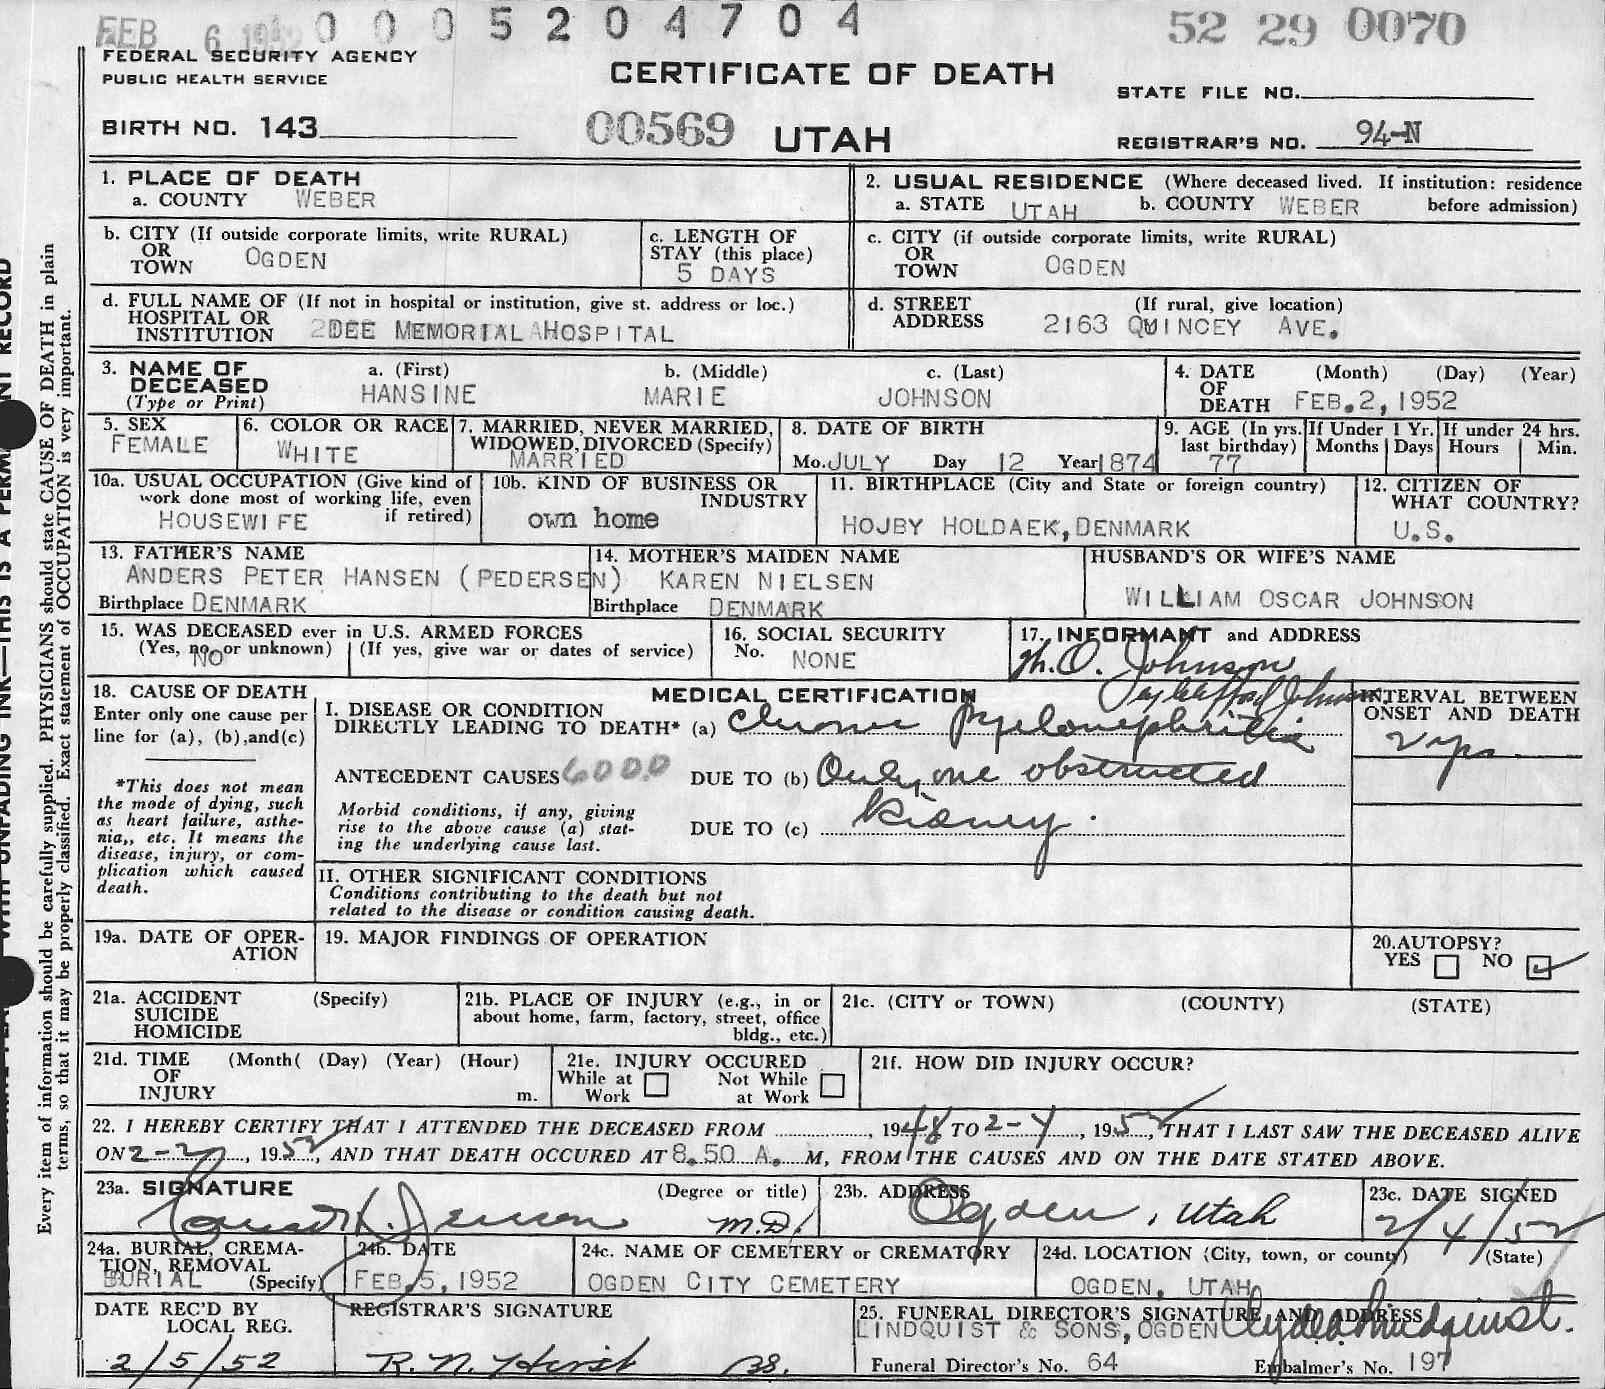 FEB 6 19
0 0 0 5 2 0 4 7 0 4
52 29 0070
FEDERAL SECURITY AGENCY
PUBLIC HEALTH SERVICE
CERTIFICATE OF DEATH
STATE FILE NO.
BIRTH NO. 143
00569 UTAH
REGISTRAR'S NO. 94-N
1. PLACE OF DEATH
a. COUNTY WEBER
2. USUAL RESIDENCE (Where deceased lived. If institution: residence before admission)
a. STATE UTAH b. COUNTY WEBER
b. CITY (If outside corporate limits, write RURAL)
OR
TOWN OGDEN
c. LENGTH OF
STAY (this place)
5 DAYS
c. CITY (if outside corporate limits, write RURAL)
OR
TOWN OGDEN
d. FULL NAME OF (If not in hospital or institution, give st. address or loc.)
HOSPITAL OR
INSTITUTION DEE MEMORIAL HOSPITAL
d. STREET (If rural, give location)
ADDRESS 2163 QUINCEY AVE.
3. NAME OF
DECEASED
(Type or Print)
a. (First) b. (Middle) c. (Last)
HANSINE MARIE JOHNSON
4. DATE (Month) (Day) (Year)
OF
DEATH FEB.2,1952
5. SEX
FEMALE
6. COLOR OR RACE
WHITE
7. MARRIED, NEVER MARRIED,
WIDOWED, DIVORCED (Specify)
MARRIED
8. DATE OF BIRTH
Mo. JULY Day 12 Year 1874
9. AGE (In yrs.
last birthday)
77
If Under 1 Yr.
Months Days
If under 24 hrs.
Hours Min.
10a. USUAL OCCUPATION (Give kind of
work done most of working life, even
if retired)
HOUSEWIFE
10b. KIND OF BUSINESS OR
INDUSTRY
own home
11. BIRTHPLACE (City and State or foreign country)
HOJBY HOLDAEK, DENMARK
12. CITIZEN OF
WHAT COUNTRY?
U.S.
13. FATHER'S NAME
ANDERS PETER HANSEN (PEDERSEN)
Birthplace DENMARK
14. MOTHER'S MAIDEN NAME
KAREN NIELSEN
Birthplace DENMARK
HUSBAND'S OR WIFE'S NAME
WILLIAM OSCAR JOHNSON
15. WAS DECEASED ever in U.S. ARMED FORCES
(Yes, no, or unknown) (If yes, give war or dates of service)
NO
16. SOCIAL SECURITY
No. NONE
17. INFORMANT and ADDRESS
Johnson
18. CAUSE OF DEATH
Enter only one cause per
line for (a), (b), and (c)
*This does not mean
the mode of dying, such
as heart failure, asthe-
nia,, etc. It means the
disease, injury, or com-
plication which caused
death.
MEDICAL CERTIFICATION
I. DISEASE OR CONDITION
DIRECTLY LEADING TO DEATH* (a) Chronic Pyelonephritis
ANTECEDENT CAUSES 6000 DUE TO (b) Only one obstructed
Morbid conditions, if any, giving
rise to the above cause (a) stat-
ing the underlying cause last.
DUE TO (c) Kidney.
INTERVAL BETWEEN
ONSET AND DEATH
II. OTHER SIGNIFICANT CONDITIONS
Conditions contributing to the death but not
related to the disease or condition causing death.
19a. DATE OF OPER-
ATION
19. MAJOR FINDINGS OF OPERATION
20. AUTOPSY?
YES NO
21a. ACCIDENT (Specify)
SUICIDE
HOMICIDE
21b. PLACE OF INJURY (e.g., in or
about home, farm, factory, street, office
bldg., etc.)
21c. (CITY or TOWN) (COUNTY) (STATE)
21d. TIME (Month( (Day) (Year) (Hour)
OF
INJURY m.
21e. INJURY OCCURED
While at Not While
Work at Work
21f. HOW DID INJURY OCCUR?
22. I HEREBY CERTIFY THAT I ATTENDED THE DECEASED FROM ........, 1948 TO 2-4, 1952, THAT I LAST SAW THE DECEASED ALIVE
ON 2-2, 1952, AND THAT DEATH OCCURED AT 8.50 A. M, FROM THE CAUSES AND ON THE DATE STATED ABOVE.
23a. SIGNATURE (Degree or title)
M.D.
23b. ADDRESS
Ogden, Utah
23c. DATE SIGNED
2/4/52
24a. BURIAL, CREMA-
TION, REMOVAL
BURIAL (Specify)
24b. DATE
FEB.5,1952
24c. NAME OF CEMETERY or CREMATORY
OGDEN CITY CEMETERY
24d. LOCATION (City, town, or county) (State)
OGDEN, UTAH
DATE REC'D BY
LOCAL REG.
2/5/52
REGISTRAR'S SIGNATURE
R. N. Hirst
25. FUNERAL DIRECTOR'S SIGNATURE AND ADDRESS
LINDQUIST & SONS, OGDEN Clyde Lindquist.
Funeral Director's No. 64 Embalmer's No. 197
Every item of information should be carefully supplied. PHYSICIANS should state CAUSE OF DEATH in plain
terms, so that it may be properly classified. Exact statement of OCCUPATION is very important.
WITH UNFADING INK—THIS IS A PERMANENT RECORD